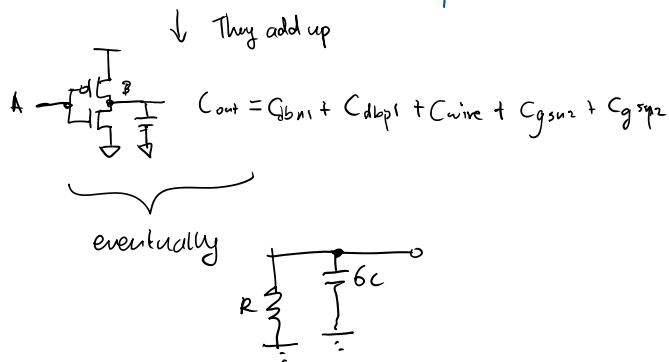 They add up
A
B
Cout = Cdbn1 + Cdbp1 + Cwire + Cgsn2 + Cgsp2
eventually
6C
R